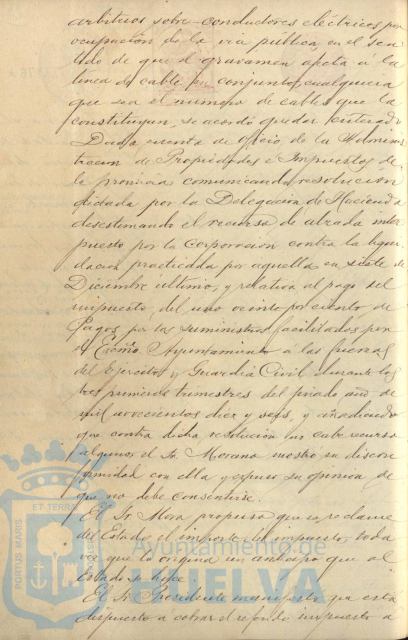 arbitrios sobre conductores eléctricos por
ocupación de la via pública, en el sen
tido de que el gravamen afecta a la
linea de cable por conjunto, cualquiera
que sea el número de cables que la
constituyan, se acordó quedar enterado.
Dada cuenta de oficio de la Adminis
tración de Propiedades é Impuestos de
la provincia comunicando resolución
dictada por la Delegación de Hacienda
desestimando el recurso de alzada inter
puesto por la Corporación contra la liqui
dación practicada por aquella en siete de
Diciembre ultimo, y relativa al pago del
impuesto del uno veinte por ciento de
Pagos por los suministros facilitados por
el Excmo. Ayuntamiento á las fuerzas
del Ejercito y Guardia Civil durante los
tres primeros trimestres del pasado año de
mil novecientos diez y seis, y añadiendo
que contra dicha resolución no cabe recurso
alguno, el Sr. Moreno mostro su discon
formidad con ella y expuso su opinión de
que no debe consentirse.
El Sr. Mora propuso que se reclame
del Estado el importe del impuesto, toda
vez que lo origina un anticipo que al
Estado se hace.
El Sr. Presidente manifestó que está
dispuesto a cobrar el referido impuesto a
PORTUS MARIS
ET TERRÆ
Ayuntamiento de
HUELVA